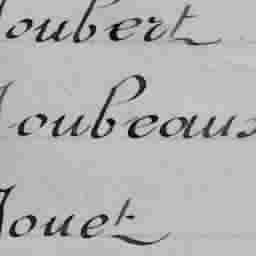 Joubert
Joubeaux
Jouet